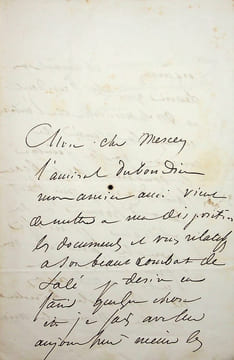 Mon cher Mercey
l'amiral Dubourdieu
mon ancien ami vient
de mettre a ma disposition
les documents et vues relatifs
a son beau combat de
Salé je desire en
faire quelque chose
et je vais avec lui
aujourd'hui même les